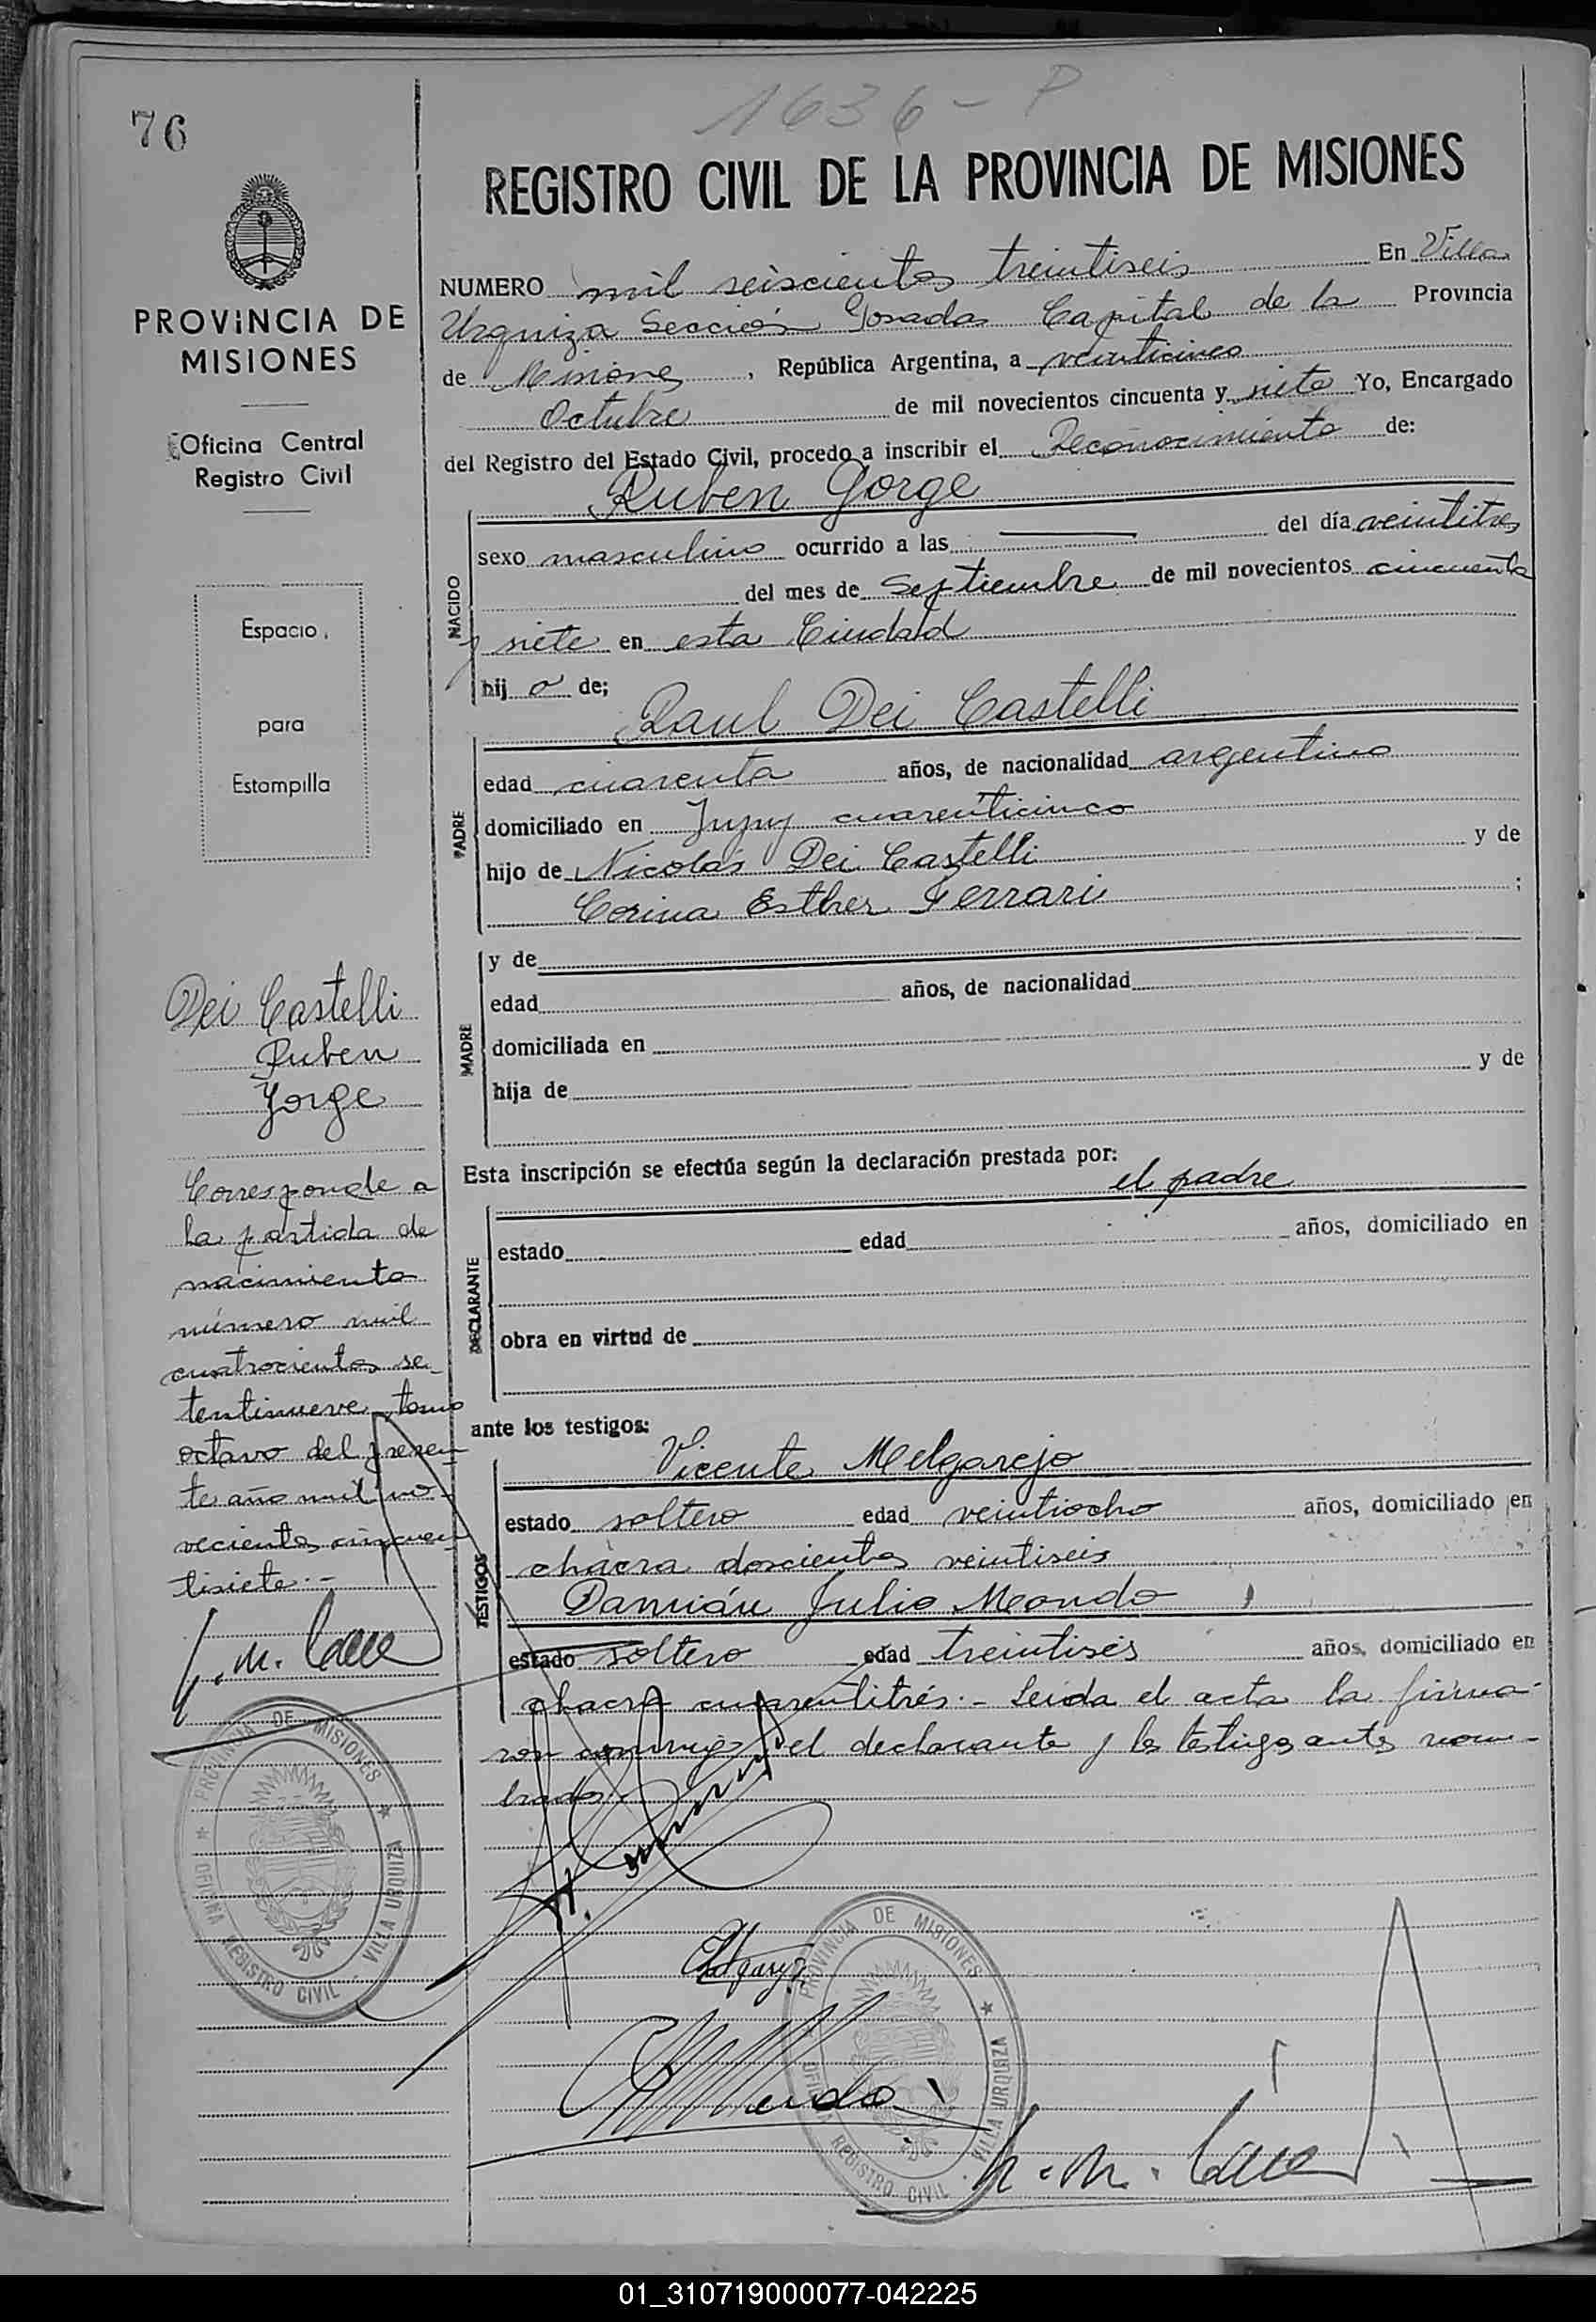 76
1636 - P
PROVINCIA DE
MISIONES
Oficina Central
Registro Civil
Espacio
para
Estampilla
Dei Castelli
Ruben
Jorge
Corresponde a
la partida de
nacimiento
número mil
cuatrocientos se-
tentinueve, tomo
octavo del presen-
te año mil no-
vecientos cincuen-
tisiete.-
PROVINCIA DE MISIONES
OFICINA REGISTRO CIVIL VILLA URQUIZA
REGISTRO CIVIL DE LA PROVINCIA DE MISIONES
NUMERO mil seiscientos treintiseis En Villa
Urquiza Sección Posadas Capital de la Provincia
de Misiones, República Argentina, a veinticinco
Octubre de mil novecientos cincuenta y siete Yo, Encargado
del Registro del Estado Civil, procedo a inscribir el Reconocimiento de:
Ruben Jorge
NACIDO
sexo masculino ocurrido a las del día veintitres
del mes de Septiembre de mil novecientos cincuenta
y siete en esta Ciudad
hij o de;
Raul Dei Castelli
PADRE
edad cuarenta años, de nacionalidad argentino
domiciliado en Jujuy cuarenticinco
hijo de Nicolás Dei Castelli y de
Corina Esther Ferrari ;
MADRE
y de
edad años, de nacionalidad
domiciliada en
hija de y de
Esta inscripción se efectúa según la declaración prestada por:
el padre
DECLARANTE
estado edad años, domiciliado en
obra en virtud de
ante los testigos:
Vicente Melgarejo
TESTIGOS
estado soltero edad veintiocho años, domiciliado en
chacra doscientos veintiseis
Damián Julio Mendo
estado soltero edad treintiseis años, domiciliado en
chacra cuarentitrés.- Leida el acta la firma-
ron conmigo el declarante y los testigos antes nom-
brados
PROVINCIA DE MISIONES
OFICINA REGISTRO CIVIL VILLA URQUIZA
01_310719000077-042225